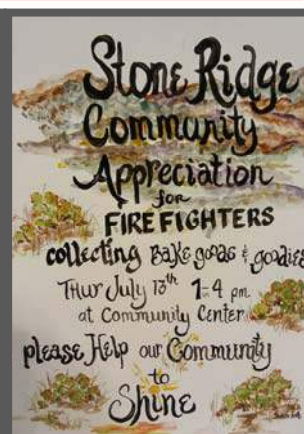 Stone Ridge
Community
Appreciation
for
FIREFIGHTERS
collecting Bake goods & goodies
THur July 13th 1-4 pm
at Community Center
please Help our Community
to
Shine